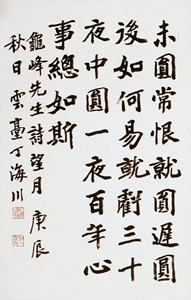 未圓常恨就圓遲圓
後如何易就虧三十
夜中圓一夜百年心
事總如斯
龜峰先生詩望月 庚辰
秋日 雲臺丁海川